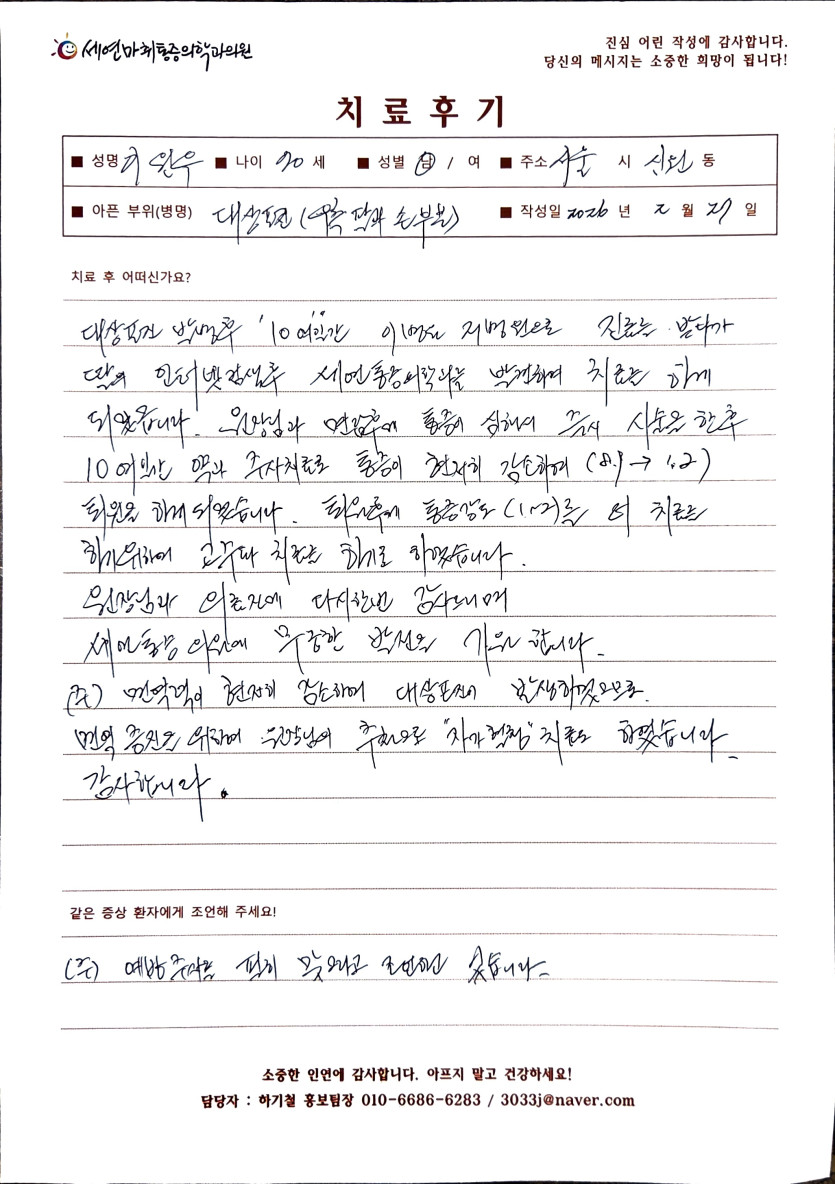 세연마취통증의학과의원
진심 어린 작성에 감사합니다.
당신의 메시지는 소중한 희망이 됩니다!
치료후기
■ 성명 ■ 나이 70 세 ■ 성별 남 / 여 ■ 주소 서울 시 신원 동
■ 아픈 부위(병명) 대상포진 (팔과 손부분) ■ 작성일 2026 년 2 월 27 일
치료 후 어떠신가요?
대상포진 발병후 '10여일'간 이병원 저병원으로 진료를 받다가
딸의 인터넷검색후 세연통증의학과를 발견하여 치료를 하게
되었습니다. 원장님과 면담후에 통증이 심해서 즉시 시술을 한후
10여일간 약과 주사치료로 통증이 현저히 감소하여 (8.9 → 1.2)
퇴원을 하게 되었습니다. 퇴원후에 통증강도 (1~2)를 더 치료를
하기위하여 고주파 치료를 하기로 하였습니다.
원장님과 의료진에 다시한번 감사드리며
세연통증의원에 무궁한 발전을 기원합니다.
(주) 면역력이 현저히 감소하여 대상포진이 발생하였으므로.
면역 증원을 위하여 원장님의 추천으로 "자가혈청" 치료도 하였습니다.
감사합니다.
같은 증상 환자에게 조언해 주세요!
(주) 예방주사를 필히 맞으라고 조언하고 싶습니다.
소중한 인연에 감사합니다. 아프지 말고 건강하세요!
담당자 : 하기철 홍보팀장 010-6686-6283 / 3033j@naver.com